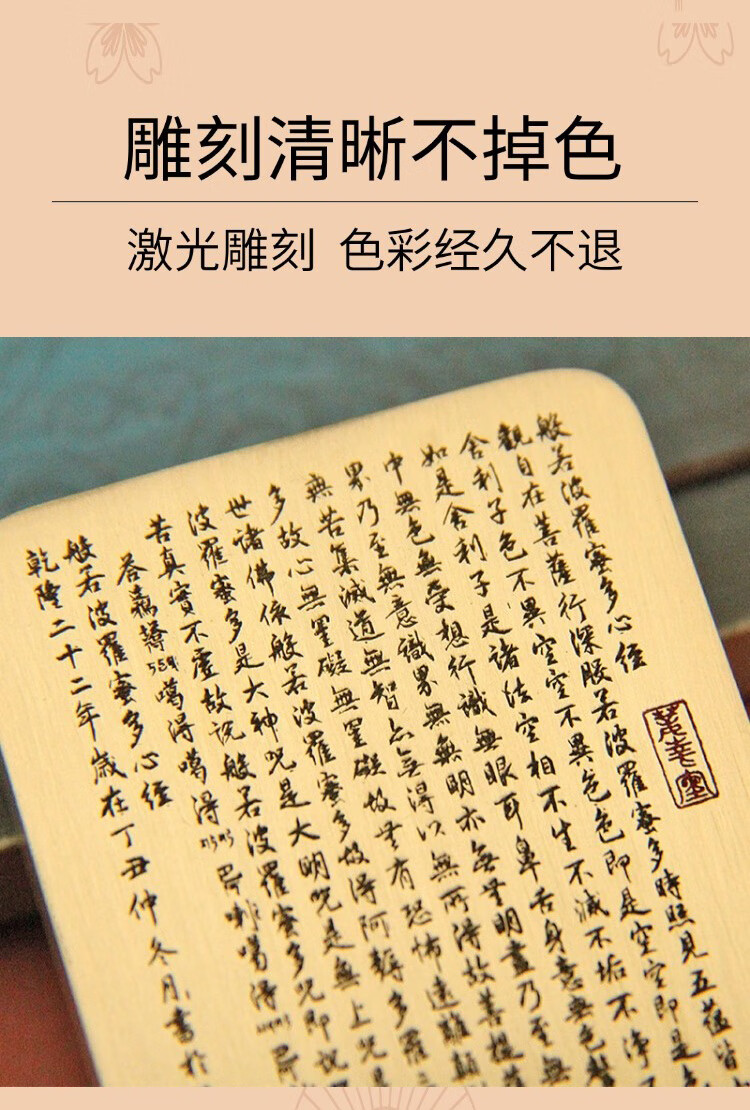 雕刻清晰不掉色
激光雕刻 色彩经久不退
般若波羅蜜多心經
觀自在菩薩行深般若波羅蜜多時照見五蘊皆
舍利子色不異空空不異色色即是空空即是色
如是舍利子是諸法空相不生不滅不垢不淨不
中無色無受想行識無眼耳鼻舌身意無色聲
界乃至無意識界無無明亦無無明盡乃至無
無苦集滅道無智亦無得以無所得故菩提
多故心無罣礙無罣礙故無有恐怖遠離顛
世諸佛依般若波羅蜜多故得阿耨多羅三
波羅蜜多是大神咒是大明咒是無上咒是
苦真實不虛故說般若波羅蜜多咒即說
噶得噶得
般若波羅蜜多心經
乾隆二十二年歲在丁丑仲冬月書於